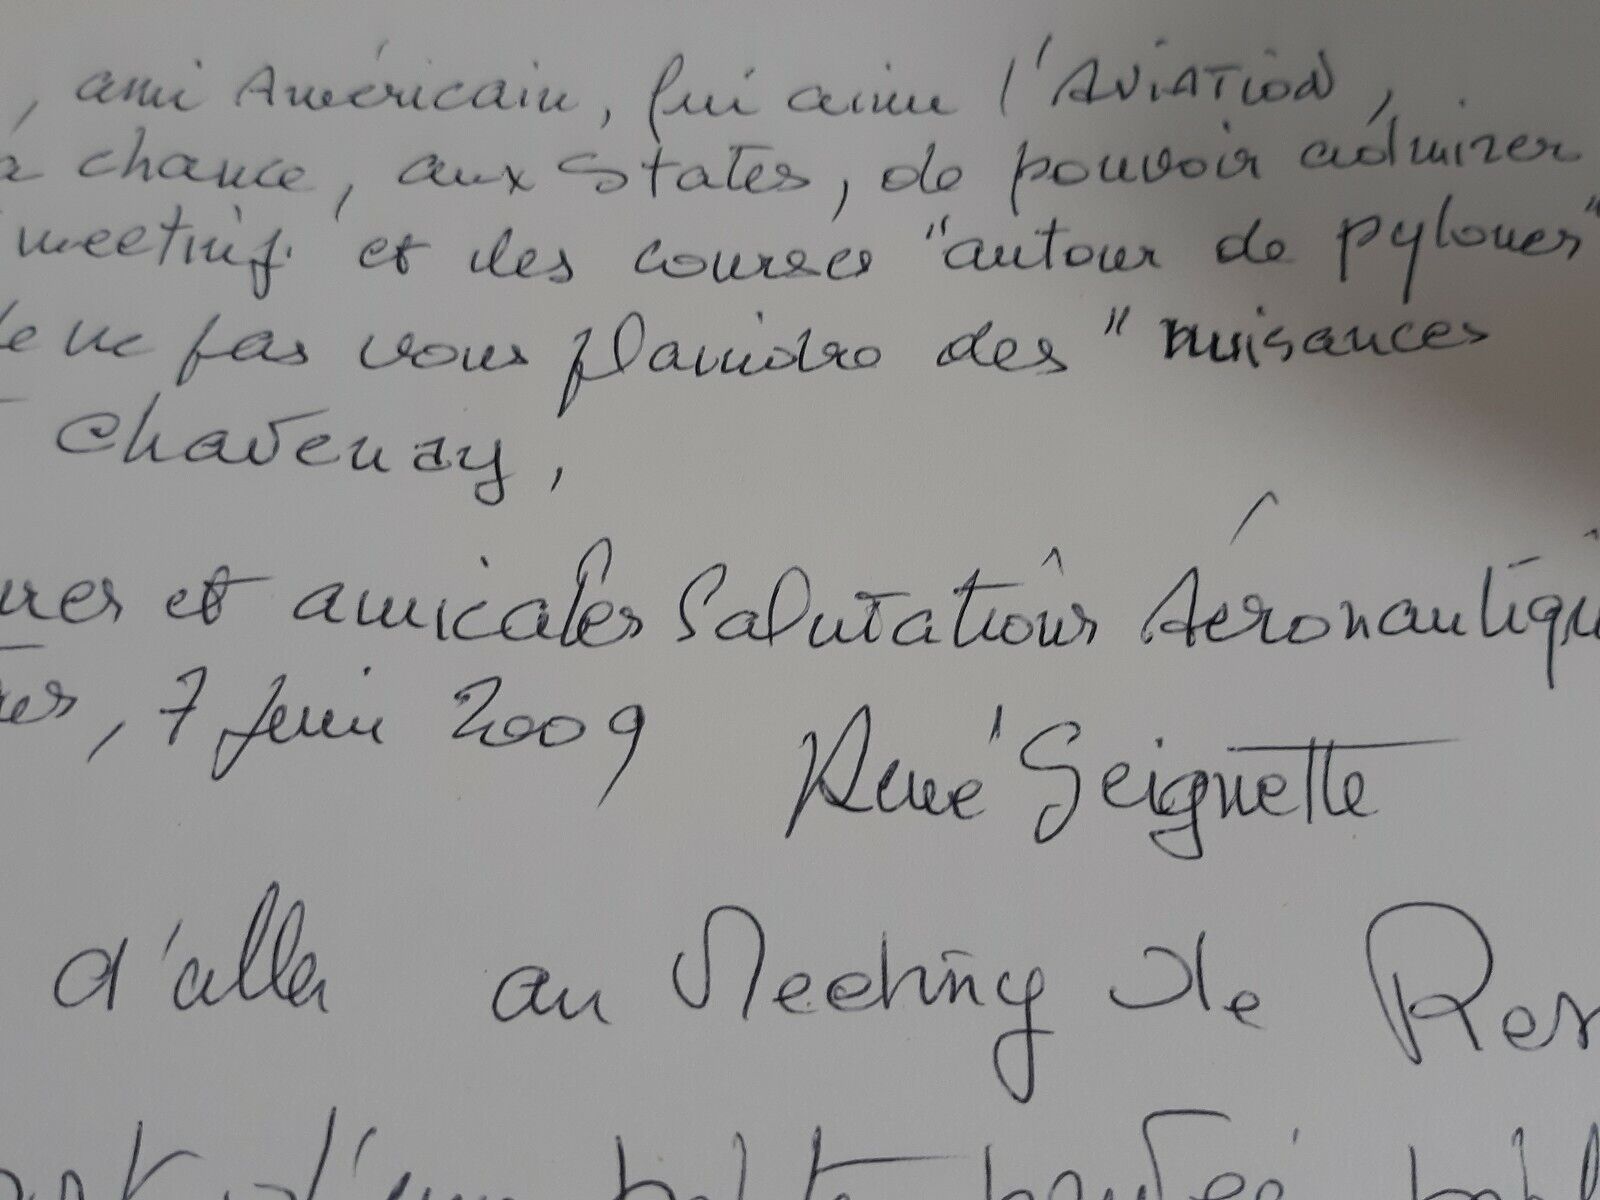 , ami Américain, qui aime l'AViATiON,
a chance, aux States, de pouvoir admirer
meeting et des courses "autour de pylones"
de ne pas vous plaindre des "nuisances
Chavenay,
et amicales Salutations Aéronautiqu
, 7 Juin 2009 René Seignette
d'aller au Meeting de
d'une